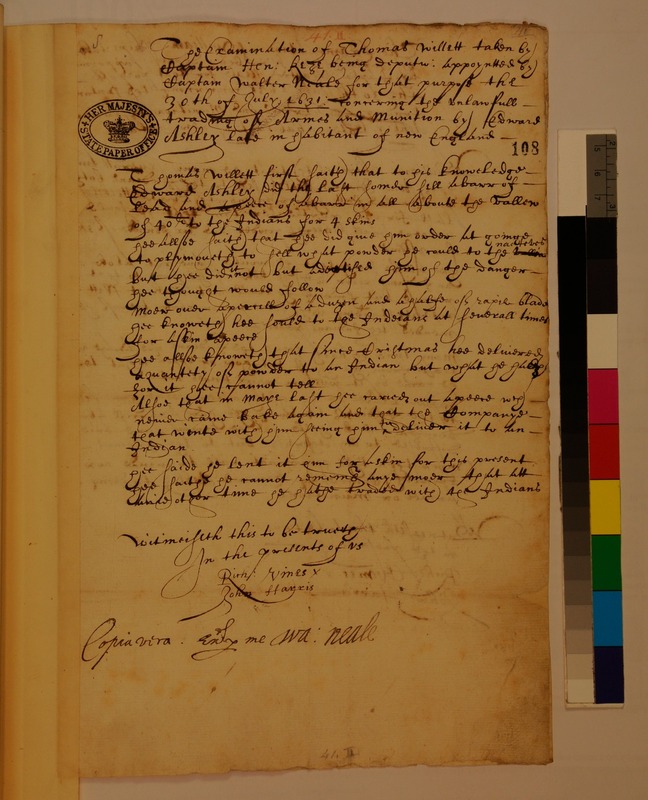 The Examination of Thomas Willett taken by
Captain Hen: Keye being deputw: appoynted by
Captain Walter Neale for that purpose the
30th of July 1631 concerning the unlawfull
trading of Armes and Munition by Edward
Ashley late inhabitant of new England
HER MAJESTY'S
STATE PAPER OFFICE
108
Thomas Willett first saith that to his knowledge
Edward Ashley did the last somer sell a barr of
Lead and a peece of a barr in all aboute the vallew
of 40li to the Indians for 4 skins
hee allsoe saith that hee did give him order at goinge
to plymouth to sell what powder he could to the natives
but hee did not but advertised him of the danger
hee thought would follow
Moer over a percell of a duzin and a halfe of rapir blades
hee knoweth hee sould to the Indeans at severall times
for a skin a peece
hee allsoe knoweth that since Cristmas hee delivered
a quantety of powder to an Indian but what he had
for it hee cannot tell
Alsoe that in Maye last hee caried out a peece wch
never came bake again and that the Companye
that wente with him seeing him deliver it to an
Indian
hee saide he lent it him for a skin for this present
hee saithe he cannot remember anye moer that att
anie other time he hathe traded with the Indians
Witnesseth this to be trueth
In the presents of us
Rich: Vines
John Harris
Copia vera. me Wa: Neale